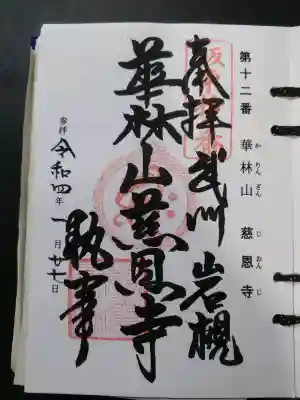 第十二番 華林山 慈恩寺
かりんざん じおんじ
奉拝 武州 岩槻
華林山慈恩寺
執事
参拝 令和四年一月廿七日